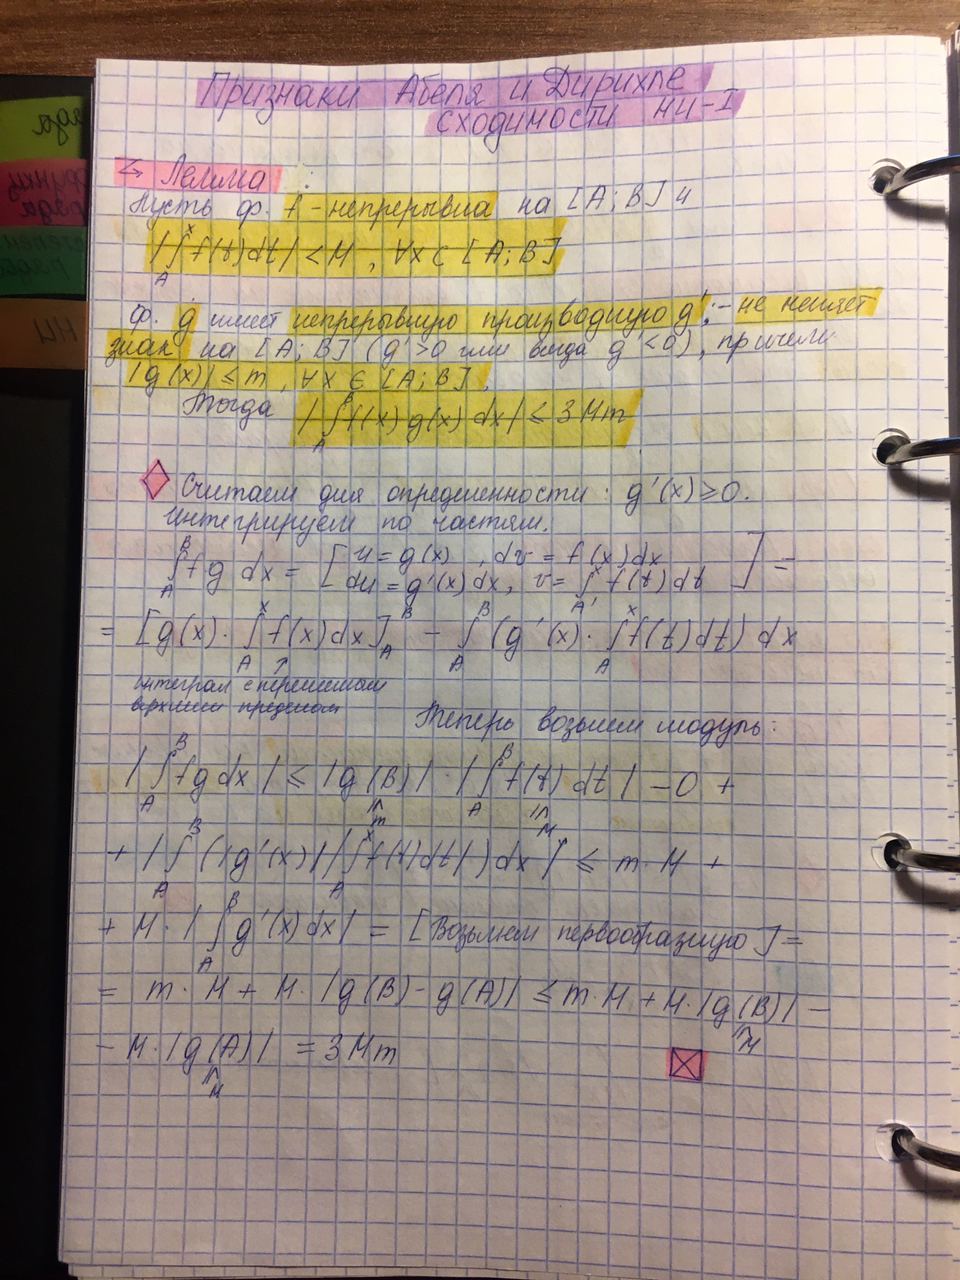 Признаки Абеля и Дирихле
сходимости НИ-I
↳ Лемма :
Пусть ф. f - непрерывна на [A; B] и
|∫_A^x f(t)dt| < M, ∀x ∈ [A; B]
ф. g имеет непрерывную производную g', - не меняет
знак на [A; B] (g' > 0 или всегда g' < 0), причем
|g(x)| ≤ m, ∀x ∈ [A; B],
Тогда |∫_A^B f(x) g(x) dx| ≤ 3Mm
Считаем для определенности: g'(x) ≥ 0.
Интегрируем по частям.
∫_A^B fg dx = [u = g(x), dv = f(x)dx
du = g'(x)dx, v = ∫_A^x f(t)dt] =
= [g(x) · ∫_A^x f(x)dx]_A^B - ∫_A^B (g'(x) · ∫_A^x f(t)dt) dx
интеграл с переменным
верхним пределом
Теперь возьмем модуль:
|∫_A^B fg dx| ≤ |g(B)| · |∫_A^B f(t) dt| - 0 +
m M
+ |∫_A^B (|g'(x)| |∫_A^x f(t)dt|) dx| ≤ m · M +
+ M · |∫_A^B g'(x) dx| = [Возьмем первообразную] =
= m · M + M · |g(B) - g(A)| ≤ m · M + M · |g(B)| -
M
- M · |g(A)| = 3Mm
M